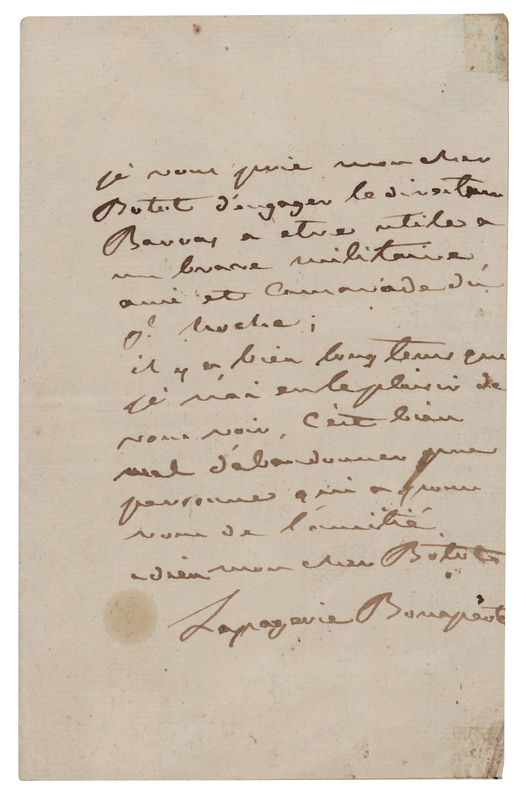 je vous prie mon cher
Botot d'engager le directeur
Barras a etre utile a
un brave militaire
ami et camarade du
g.l hoche;
il y a bien longtems que
je n'ai eu le plaisir de
vous voir, C'est bien
mal d'abandonner une
personne qui a pour
vous de l'amitié
adieu mon cher Botot
Lapagerie Bonaparte